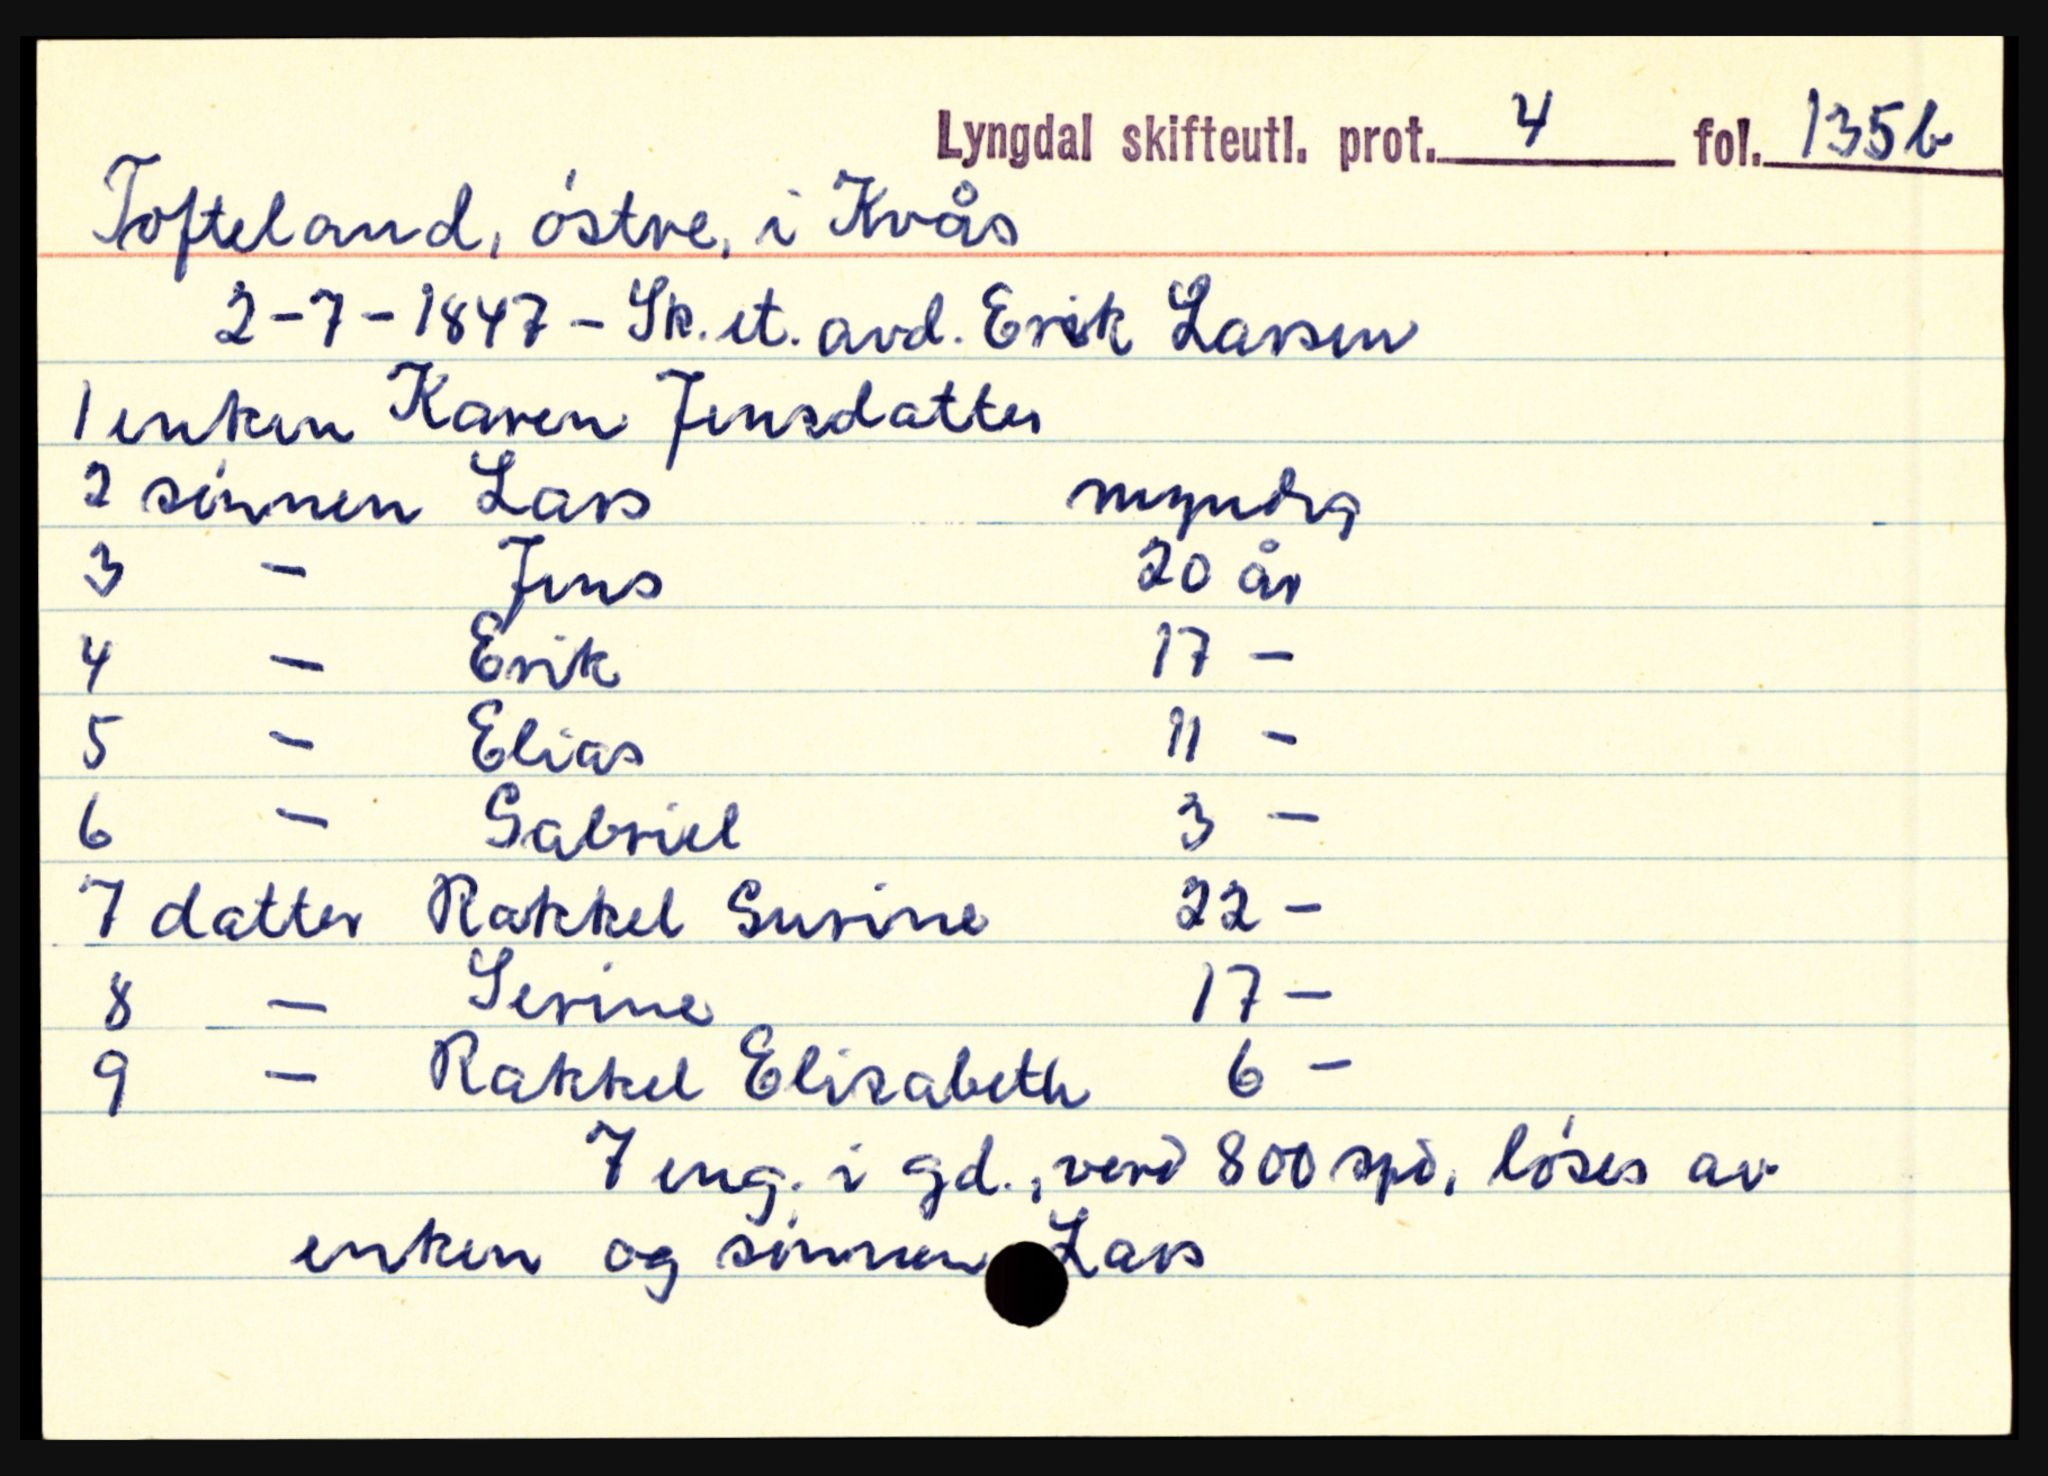 Lyngdal skifteutl. prot. 4 fol. 135b
Tofteland, östre, i Kvås
2-7-1847 - Sk. et. avd. Erik Larsen
1 enken Karen Jensdatter
2 sönnen Lars myndig
3 - Jens 20 år
4 - Erik 17 -
5 - Elias 11 -
6 - Gabriel 3 -
7 datter Rakkel Gurine 22 -
8 - Serine 17 -
9 - Rakkel Elisabeth 6 -
7 eng. i gd., verd 800 spd, löses av
enken og sönnen Lars